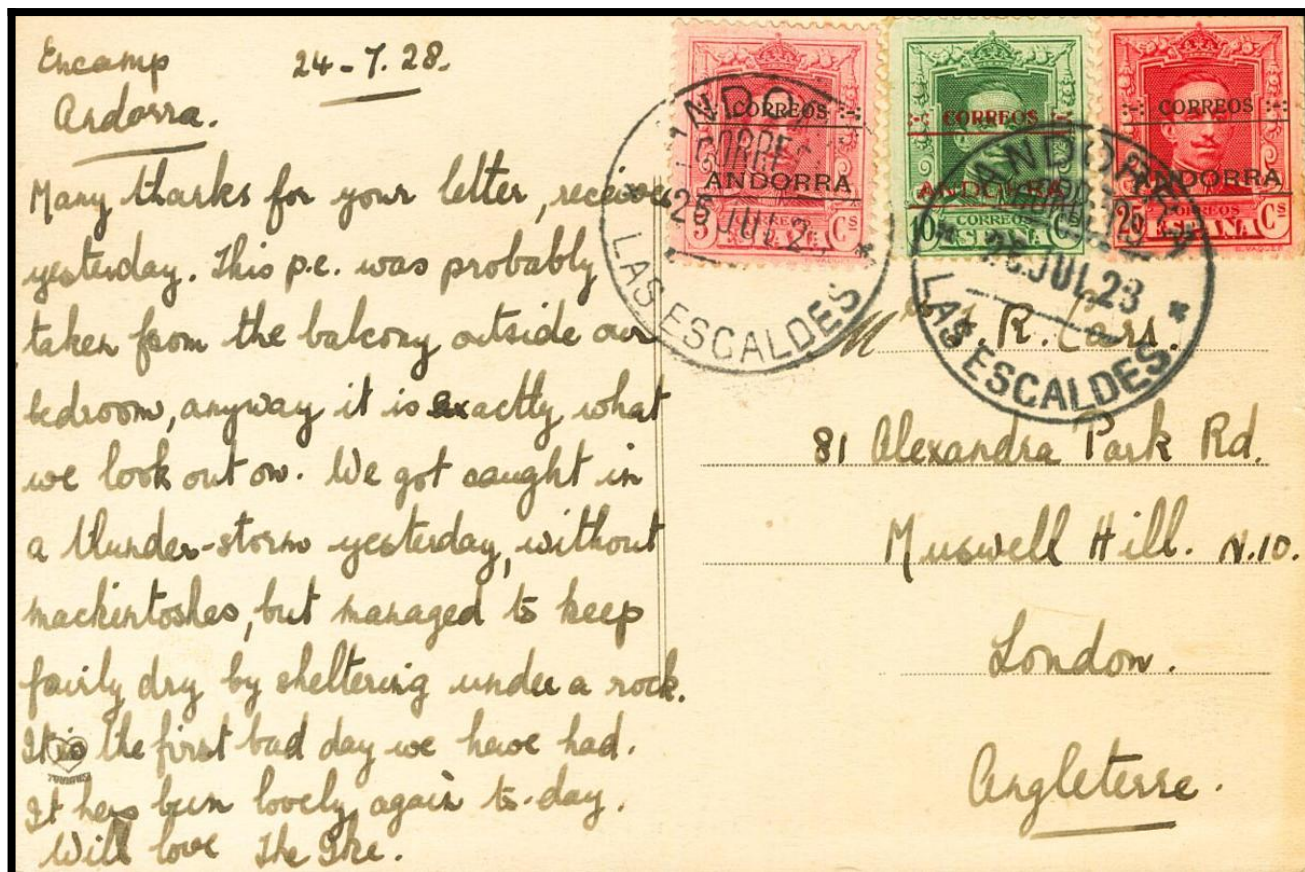 Encamp 24-7.28.
Andorra.
Many thanks for your letter, received
yesterday. This p.c. was probably
taken from the balcony outside our
bedroom, anyway it is exactly what
we look out on. We got caught in
a thunder-storm yesterday, without
mackintoshes, but managed to keep
fairly dry by sheltering under a rock.
It is the first bad day we have had.
It has been lovely again to-day.
With love
CORREOS
ANDORRA
5 CORREOS Cs
ESPAÑA
CORREOS
ANDORRA
10 CORREOS Cs
ESPAÑA
CORREOS
ANDORRA
25 CORREOS Cs
ESPAÑA
CORREOS
25 JUL 2
LAS ESCALDES
ANDORRA
CORREOS
JUL 23
LAS ESCALDES
R. Carr.
81 Alexandra Park Rd.
Muswell Hill. N.10.
London.
Angleterre.